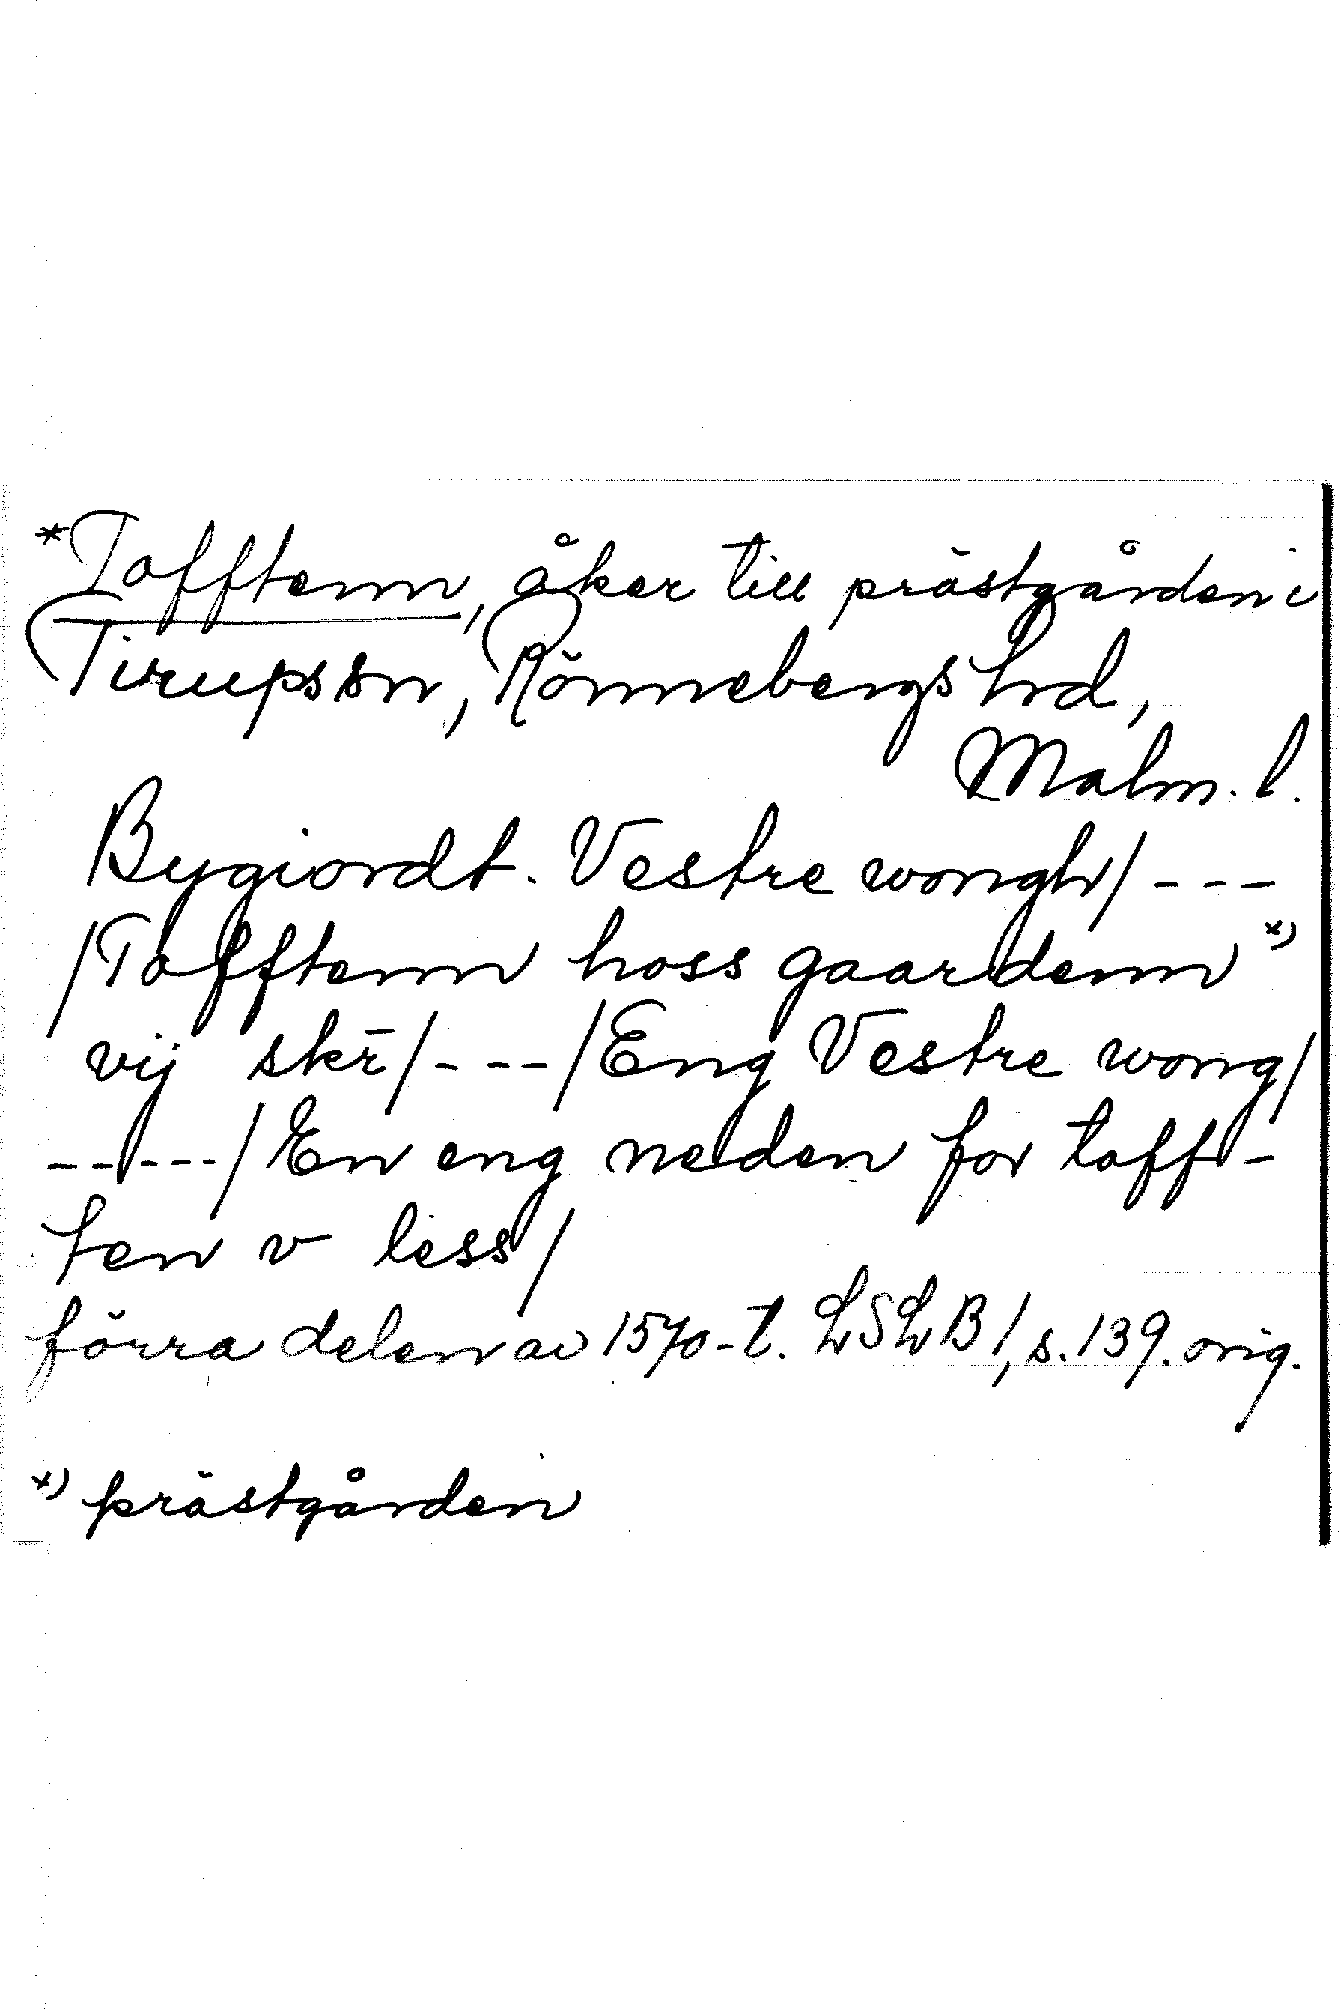 *Tofftenn, åker till prästgården i
Tirups sn, Rönnebergs hrd,
Malm. l.
Bygiordt. Vestre wongh/ - - -
/Tofftenn hoss gaardenn *)
vij skr̄/ - - - /Eng Vestre wong/
- - - - - /En eng neden for toff-
ten v less/
förra delen av 1570-t. LSLB 1, s. 139. orig.
*) prästgården